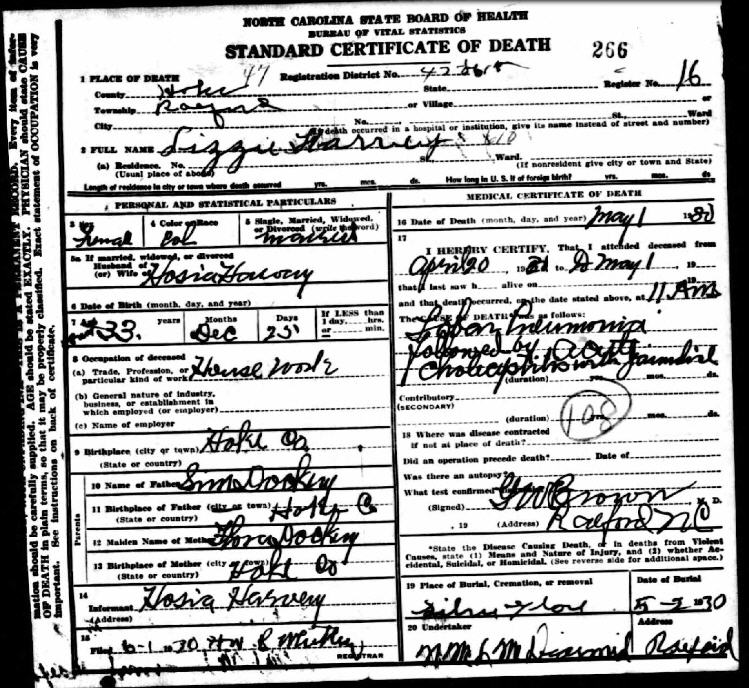 NORTH CAROLINA STATE BOARD OF HEALTH
BUREAU OF VITAL STATISTICS
STANDARD CERTIFICATE OF DEATH 266
1 PLACE OF DEATH 47 Registration District No. 42
County Hoke State Register No. 16
Township Raeford or Village or
City No. St., Ward
(If death occurred in a hospital or institution, give its name instead of street and number)
2 FULL NAME Lizzie Harvey
(a) Residence. No. St. Ward.
(Usual place of abode) (If nonresident give city or town and State)
Length of residence in city or town where death occurred yrs. mos. ds. How long in U. S. if of foreign birth? yrs. mos. ds.
PERSONAL AND STATISTICAL PARTICULARS
3 Sex 4 Color or Race 5 Single, Married, Widowed, or Divorced (write the word)
Femal Col married
5a If married, widowed, or divorced
Husband of
(or) Wife of Hosia Harvery
6 Date of Birth (month, day, and year)
7 Age years Months Days If LESS than
1 day, hrs.
33 Dec 25 or min.
8 Occupation of deceased
(a) Trade, Profession, or
particular kind of work House Work
(b) General nature of industry,
business, or establishment in
which employed (or employer)
(c) Name of employer
9 Birthplace (city or town) Hoke Co
(State or country)
Parents
10 Name of Father Dockery
11 Birthplace of Father (city or town) Hoke Co
(State or country)
12 Maiden Name of Mother Flora Dockey
13 Birthplace of Mother (city or town) Hoke Co
(State or country)
14
Informant Hosia Harvery
(Address)
15
Filed 6-1 1930
REGISTRAR
MEDICAL CERTIFICATE OF DEATH
16 Date of Death (month, day, and year) May 1 1930
17
I HEREBY CERTIFY, That I attended deceased from
April 20 19 to May 1, 19
that I last saw h alive on 19
and that death occurred, on the date stated above, at 11 Am
The CAUSE OF DEATH was as follows:
Lobar Pneumonia
followed by Acute
Cholecystitis with Jaundice
(duration) yrs. mos. ds.
Contributory
(SECONDARY)
(duration) yrs. mos. ds.
108
18 Where was disease contracted
if not at place of death?
Did an operation precede death? Date of
Was there an autopsy?
What test confirmed
(Signed) GW Brown M. D.
, 19 (Address) Raeford, NC
*State the Disease Causing Death, or in deaths from Violent
Causes, state (1) Means and Nature of Injury, and (2) whether Accidental, Suicidal, or Homicidal. (See reverse side for additional space.)
19 Place of Burial, Cremation, or removal Date of Burial
5-2 1930
20 Undertaker Address
McDiarmid Raeford
mation should be carefully supplied. AGE should be stated EXACTLY. PHYSICIAN should state CAUSE
OF DEATH in plain terms, so that it may be properly classified. Exact statement of OCCUPATION is very
important. See instructions on back of certificate.